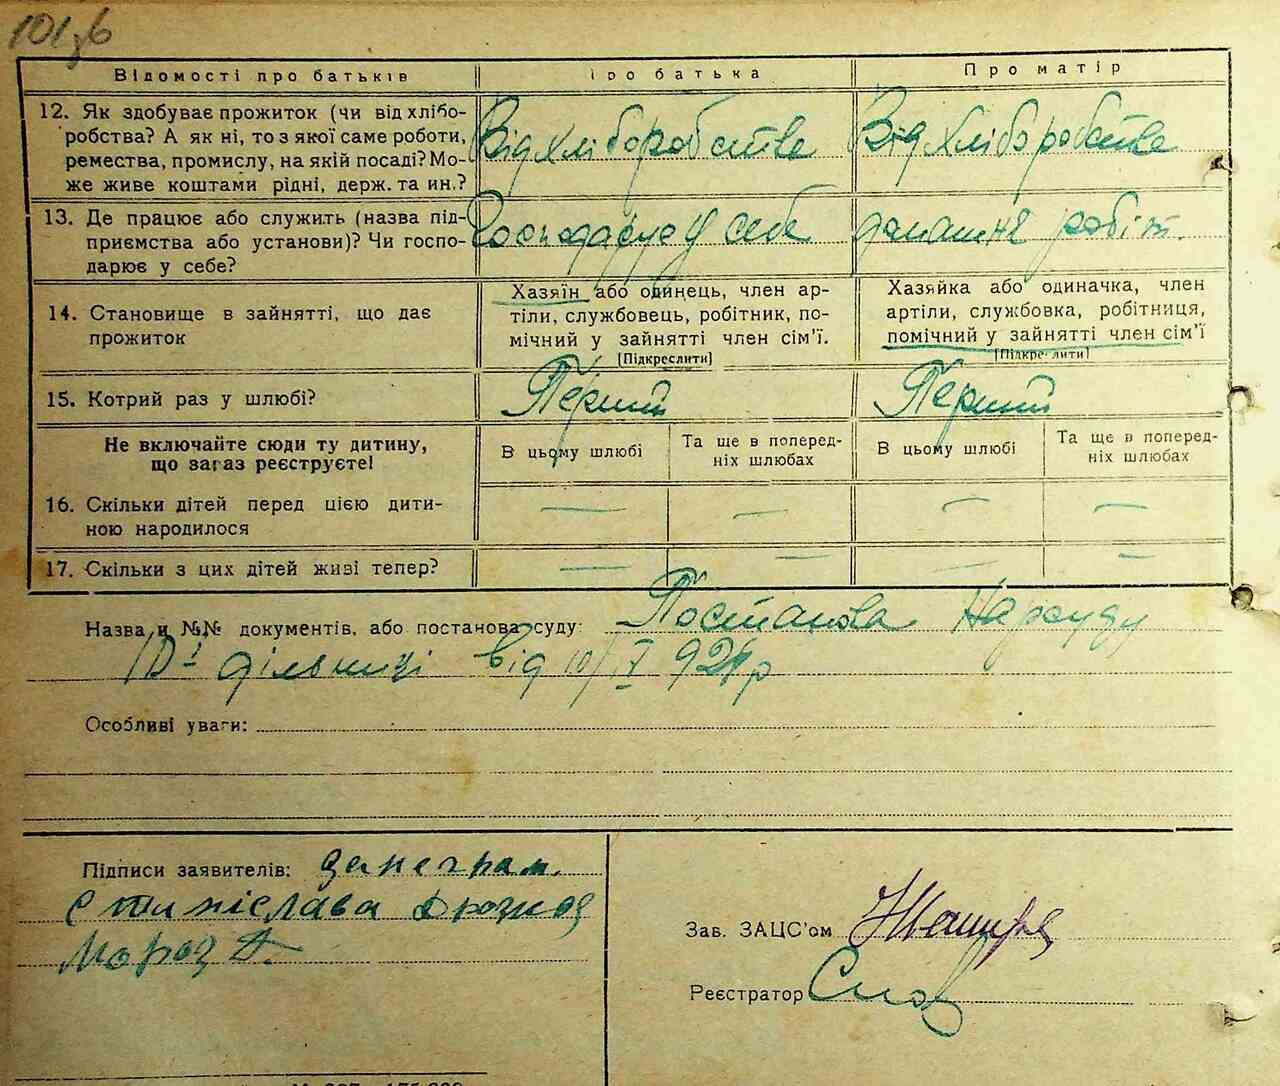 101зб
Відомості про батьків Про батька Про матір
12. Як здобуває прожиток (чи від хлібо-
робства? А як ні, то з якої саме роботи,
ремества, промислу, на якій посаді? Мо-
же живе коштами рідні, держ. та ин.?
Від хліборобства Від хліборобства
13. Де працює або служить (назва під-
приємства або установи)? Чи госпо-
дарює у себе?
Господарює у себе домашня робіт.
14. Становище в зайнятті, що дає
прожиток
Хазяїн або одинець, член ар-
тіли, службовець, робітник, по-
мічний у зайнятті член сім'ї.
(Підкреслити)
Хазяйка або одиначка, член
артіли, службовка, робітниця,
помічний у зайнятті член сім'ї
(Підкреслити)
15. Котрий раз у шлюбі? Перший Перший
Не включайте сюди ту дитину,
що зараз реєструєте!
В цьому шлюбі
Та ще в поперед-
ніх шлюбах
В цьому шлюбі
Та ще в поперед-
ніх шлюбах
16. Скільки дітей перед цією дити-
ною народилося
— — — —
17. Скільки з цих дітей живі тепер? — — — —
Назва и №№ документів, або постанова суду: Постанова Нарсуду
дільниці від 10/IV 924р
Особливі уваги:
Підписи заявителів:
Станіслава
Мороз
Зав. ЗАЦС'ом
Реєстратор